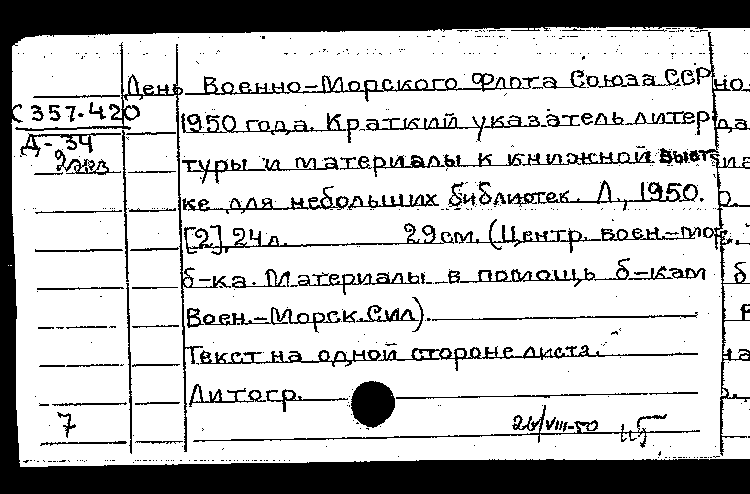 День Военно-Морского Флота Союза ССР
С 357.420
Д-34
2 экз
1950 года. Краткий указатель литер
туры и материалы к книжной выст
ке для небольших библиотек. Л., 1950.
[2], 24 л. 29 см. (Центр. воен.-мор.
б-ка. Материалы в помощь б-кам
Воен.-Морск. Сил).
Текст на одной стороне листа.
Литогр.
7
26/VIII-50